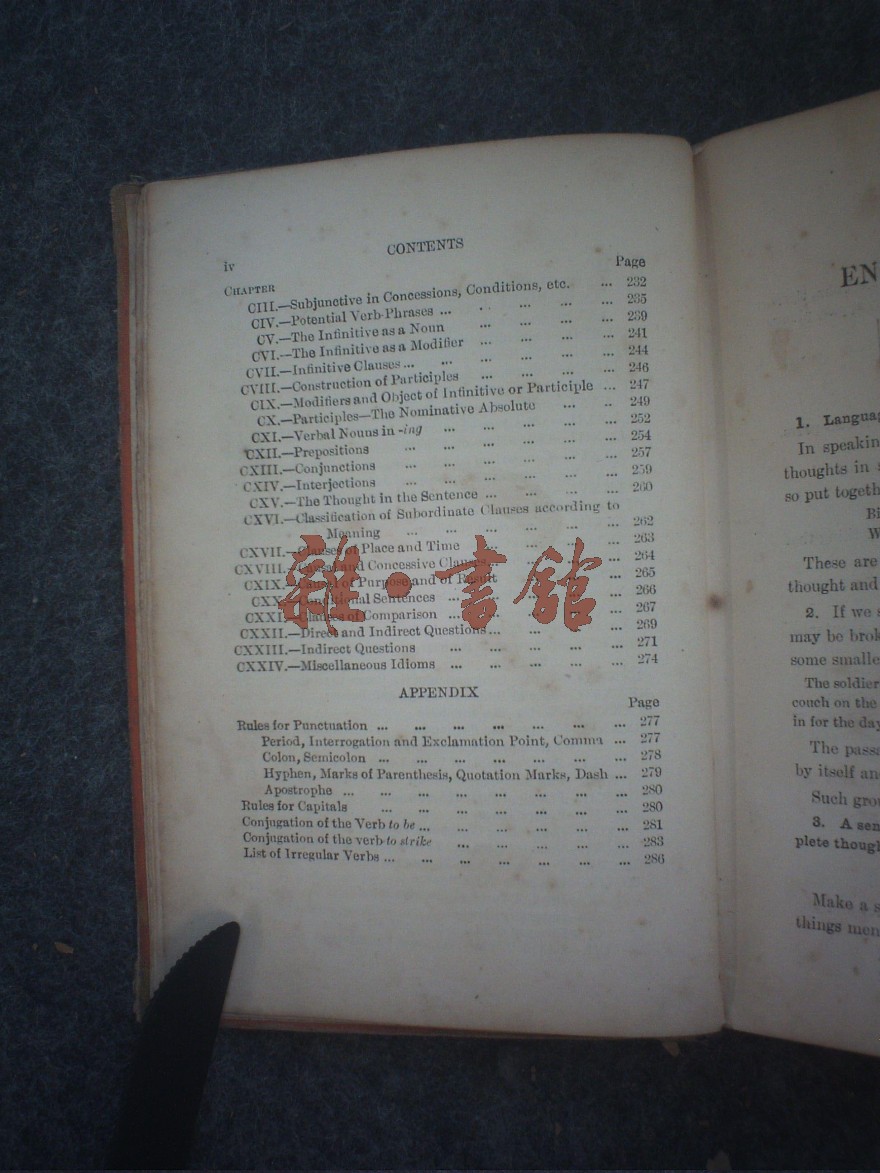 iv
CONTENTS
CHAPTER
Page
CIII.—Subjunctive in Concessions, Conditions, etc. ... 232
CIV.—Potential Verb-Phrases ... ... ... ... ... 235
CV.—The Infinitive as a Noun ... ... ... ... 239
CVI.—The Infinitive as a Modifier ... ... ... ... 241
CVII.—Infinitive Clauses ... ... ... ... ... ... 244
CVIII.—Construction of Participles ... ... ... ... 246
CIX.—Modifiers and Object of Infinitive or Participle ... 247
CX.—Participles—The Nominative Absolute ... .. 249
CXI.—Verbal Nouns in -ing ... ... ... ... ... 252
CXII.—Prepositions ... ... ... ... ... ... 254
CXIII.—Conjunctions ... ... ... ... ... ... 257
CXIV.—Interjections ... ... ... ... ... ... 259
CXV.—The Thought in the Sentence ... ... ... ... 260
CXVI.—Classification of Subordinate Clauses according to
Meaning ... ... ... ... ... ... 262
CXVII.—Clauses of Place and Time ... ... ... ... 263
CXVIII.— and Concessive Clauses... ... ... 264
CXIX.— of Purpose and of Result ... 265
CXX.—Conditional Sentences ... ... 266
CXXI.—Clauses of Comparison ... ... ... 267
CXXII.—Direct and Indirect Questions ... ... ... 269
CXXIII.—Indirect Questions ... ... ... ... ... 271
CXXIV.—Miscellaneous Idioms ... ... ... ... ... 274
雜·書館
APPENDIX
Page
Rules for Punctuation ... ... ... ... ... ... ... 277
Period, Interrogation and Exclamation Point, Comma ... 277
Colon, Semicolon ... ... ... ... ... ... ... 278
Hyphen, Marks of Parenthesis, Quotation Marks, Dash ... 279
Apostrophe ... ... ... ... ... ... ... ... 280
Rules for Capitals ... ... ... ... ... ... ... 280
Conjugation of the Verb to be ... ... ... ... ... ... 281
Conjugation of the verb to strike ... ... ... ... ... 283
List of Irregular Verbs ... ... ... ... ... ... ... 286
EN
1. Languag
In speakin
thoughts in
so put togeth
Bi
W
These are
thought and
2. If we
may be brok
some smalle
The soldier
couch on the
in for the day
The passa
by itself an
Such grou
3. A sen
plete though
Make a s
things men